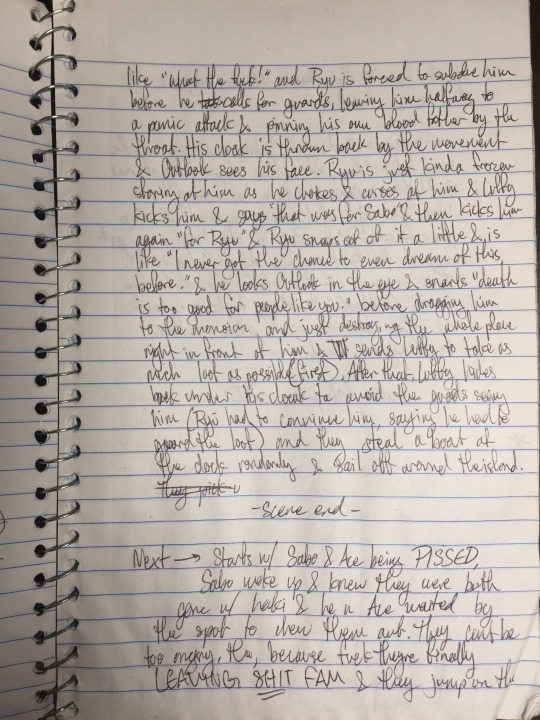 like "what the fuck!" and Ryu is forced to subdue him
before he calls for guards, leaving him halfway to
a panic attack & pinning his own blood father by the
throat. His cloak is thrown back by the movement
& Outlook sees his face. Ryu is just kinda frozen
staring at him as he chokes & curses at him & Luffy
kicks him & says "that was for Sabo" & then kicks him
again "for Ryu" & Ryu snaps out of it a little & is
like "I never got the chance to even dream of this,
before." & he looks Outlook in the eye & snarls "death
is too good for people like you." before dragging him
to the mansion and just destroying the whole place
right in front of him & sends Luffy to take as
much loot as possible (first). After that, Luffy hides
back under his cloak to avoid the guards seeing
him (Ryū had to convince him, saying he had to
guard the loot) and they steal a boat at
the dock randomly & sail off around the island.
They pick u
-scene end-
Next → Starts w/ Sabo & Ace being PISSED,
Sabo woke up & knew they were both
gone w/ haki & he n Ace waited by
the spot to chew them out. They can't be
too angry, tho, because fuck theyre finally
LEAVING SHIT FAM & they jump on the